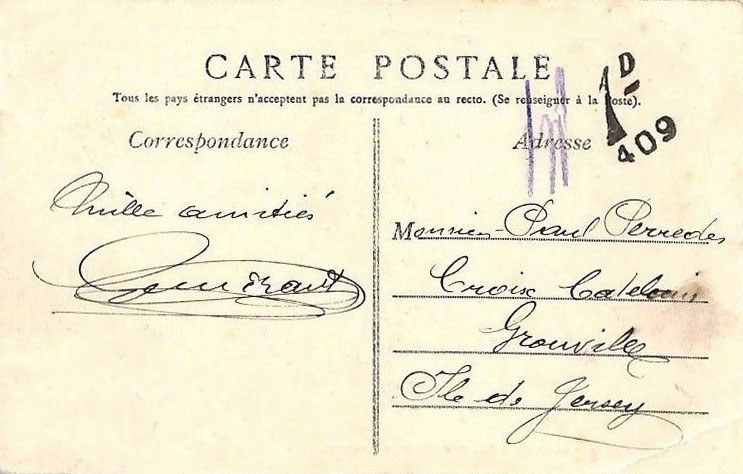 CARTE POSTALE
Tous les pays étrangers n'acceptent pas la correspondance au recto. (Se renseigner à la Poste).
1D
409
Correspondance
Adresse
Mille amitiés
Monsieur Paul Perredes
Croix Catelain
Grouville
Ile de Jersey